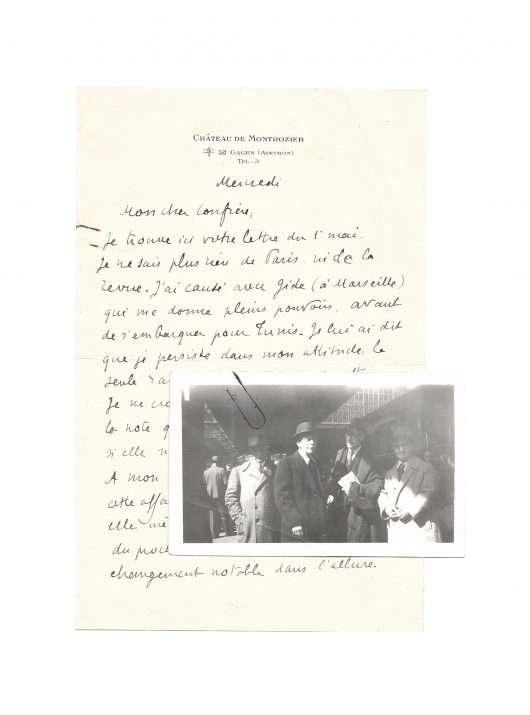 CHÂTEAU DE MONTROZIER
GAGES (AVEYRON)
TEL. 3
Mercredi
Mon cher Confrère,
Je trouve ici votre lettre du 1er mai.
Je ne sais plus rien de Paris ni de la
revue. J'ai causé avec Gide (à Marseille)
qui me donne pleins pouvoirs, avant
de s'embarquer pour Tunis. Je lui ai dit
que je persiste dans mon attitude, la
seule
Je ne
la note
si elle
A mon
cette
elle
du
changement notable dans l'allure.